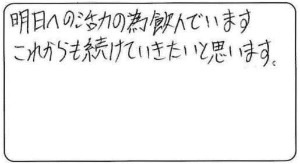 明日への活力の為飲んでいます
これからも続けていきたいと思います。